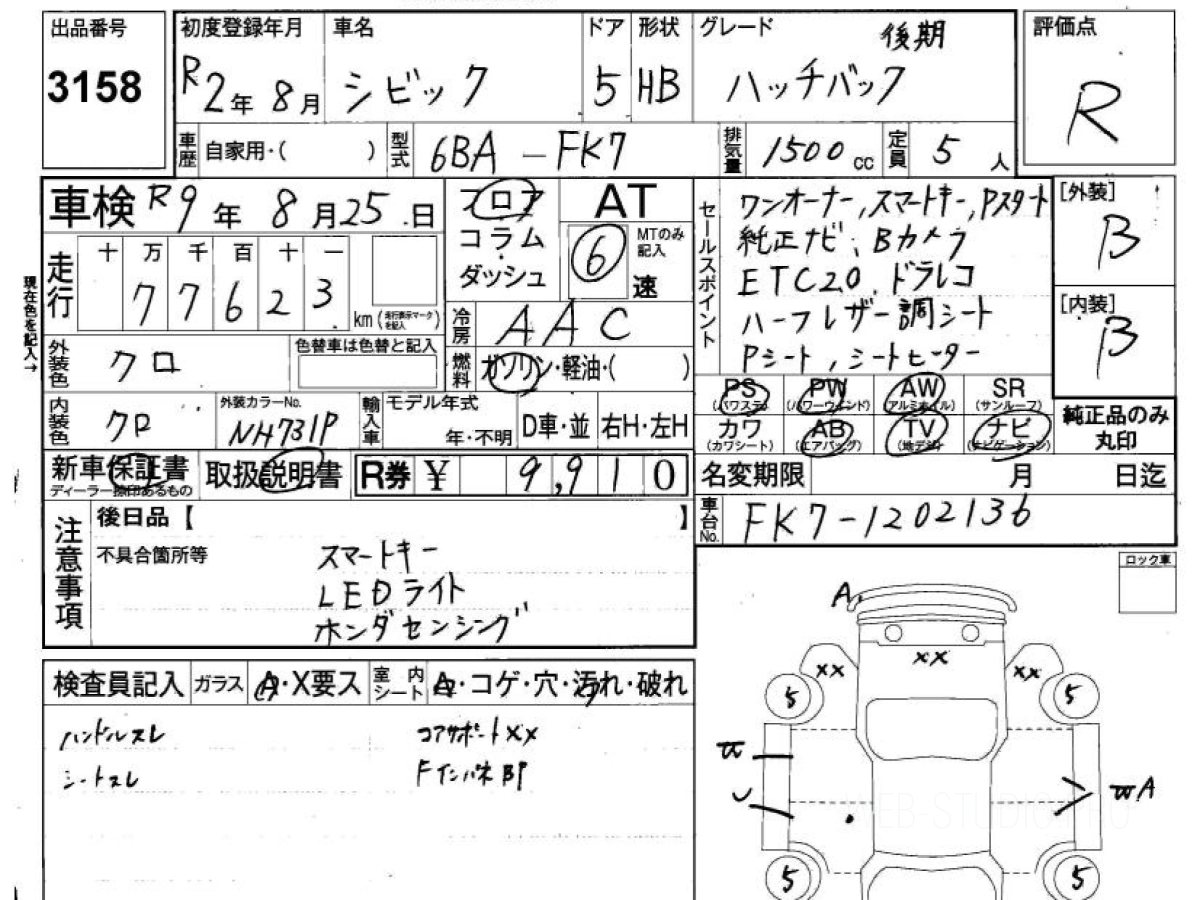 出品番号
3158
初度登録年月
R2年8月
車名
シビック
ドア
5
形状
HB
グレード
後期
ハッチバック
評価点
R
車歴
自家用・( )
型式
6BA-FK7
排気量
1500cc
定員
5人
車検 R9年8月25日
フロア
コラム
ダッシュ
AT
6
速
MTのみ
記入
セールスポイント
ワンオーナー,スマートキー,Pスタート
純正ナビ、Bカメラ
ETC2.0、ドラレコ
ハーフレザー調シート
Pシート,シートヒーター
[外装]
B
[内装]
B
現在色を記入→
走行
十万千百十一
77623
km(走行表示マークを記入)
冷房
AAC
燃料
ガソリン・軽油・( )
外装色
クロ
色替車は色替と記入
内装色
クロ
外装カラーNo.
NH731P
輸入車
モデル年式
年・不明
D車・並
右H・左H
PS
(パワステ)
PW
(パワーウインド)
AW
(アルミホイル)
SR
(サンルーフ)
カワ
(カワシート)
AB
(エアバッグ)
TV
(地デジ)
ナビ
(ナビゲーション)
純正品のみ
丸印
新車保証書
ディーラー捺印あるもの
取扱説明書
R券 ¥ 9,910
名変期限 月 日迄
車台No.
FK7-1202136
注意事項
後日品【 】
不具合箇所等
スマートキー
LEDライト
ホンダセンシング
ロック車
検査員記入
ガラス
A・X要ス
室内シート
A・コゲ・穴・汚れ・破れ
ハンドルスレ
シートスレ
コアサポートXX
FインパネBP
A
XX
XX
XX
5
5
U
A
5
5